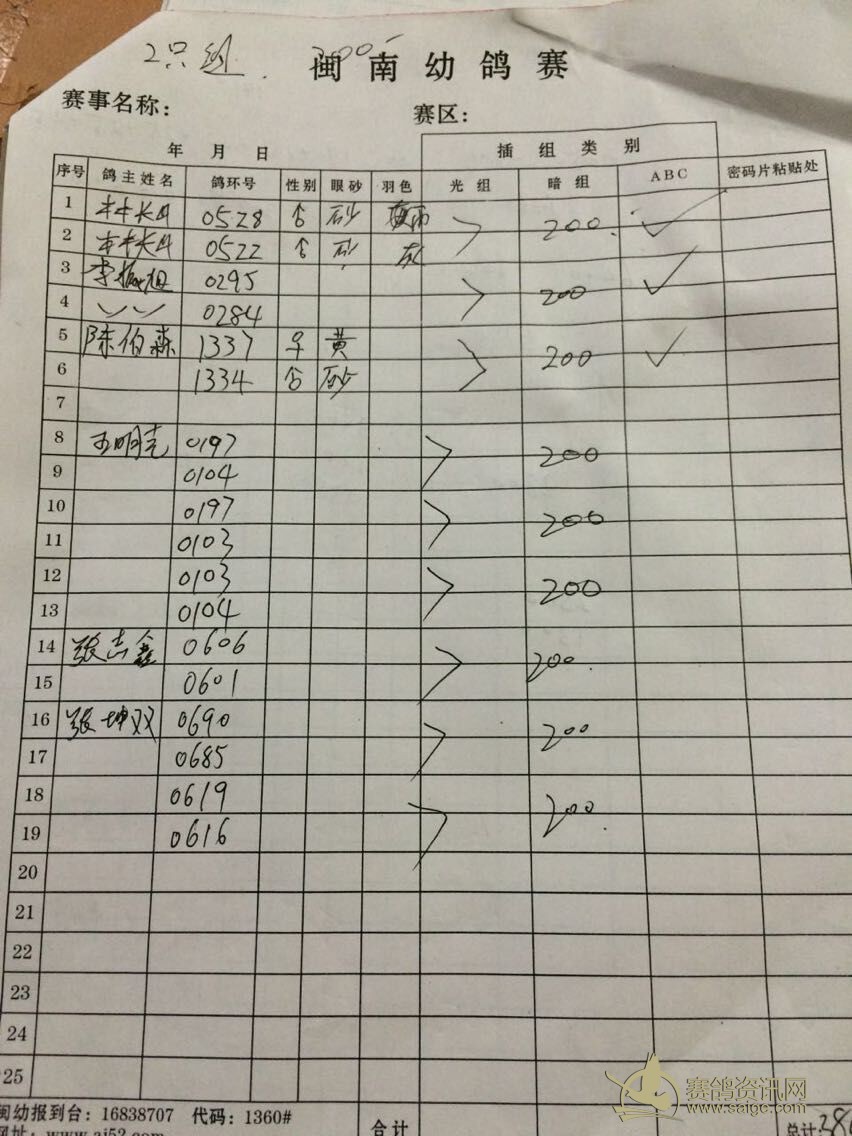 2只组. 200
闽南幼鸽赛
赛事名称： 赛区：
年 月 日 插组类别
序号 鸽主姓名 鸽环号 性别 眼砂 羽色 光组 暗组 ABC 密码片粘贴处
1 林长川 0528 砂 200. ✓
2 林长川 0522 砂 灰
3 李振旭 0295 200 ✓
4 〃 0284
5 陈伯森 1337 ♀ 黄 200 ✓
6 1334 砂
7
8 王明亮 0197 200
9 0104
10 0197 200
11 0103
12 0103 200
13 0104
14 张志鑫 0606 200.
15 0601
16 张坤双 0690 200
17 0685
18 0619 200.
19 0616
20
21
22
23
24
25
闽幼报到台：16838707 代码：1360#
网址：www.aj52.com 合计 总计
赛鸽资讯网
www.saigc.com